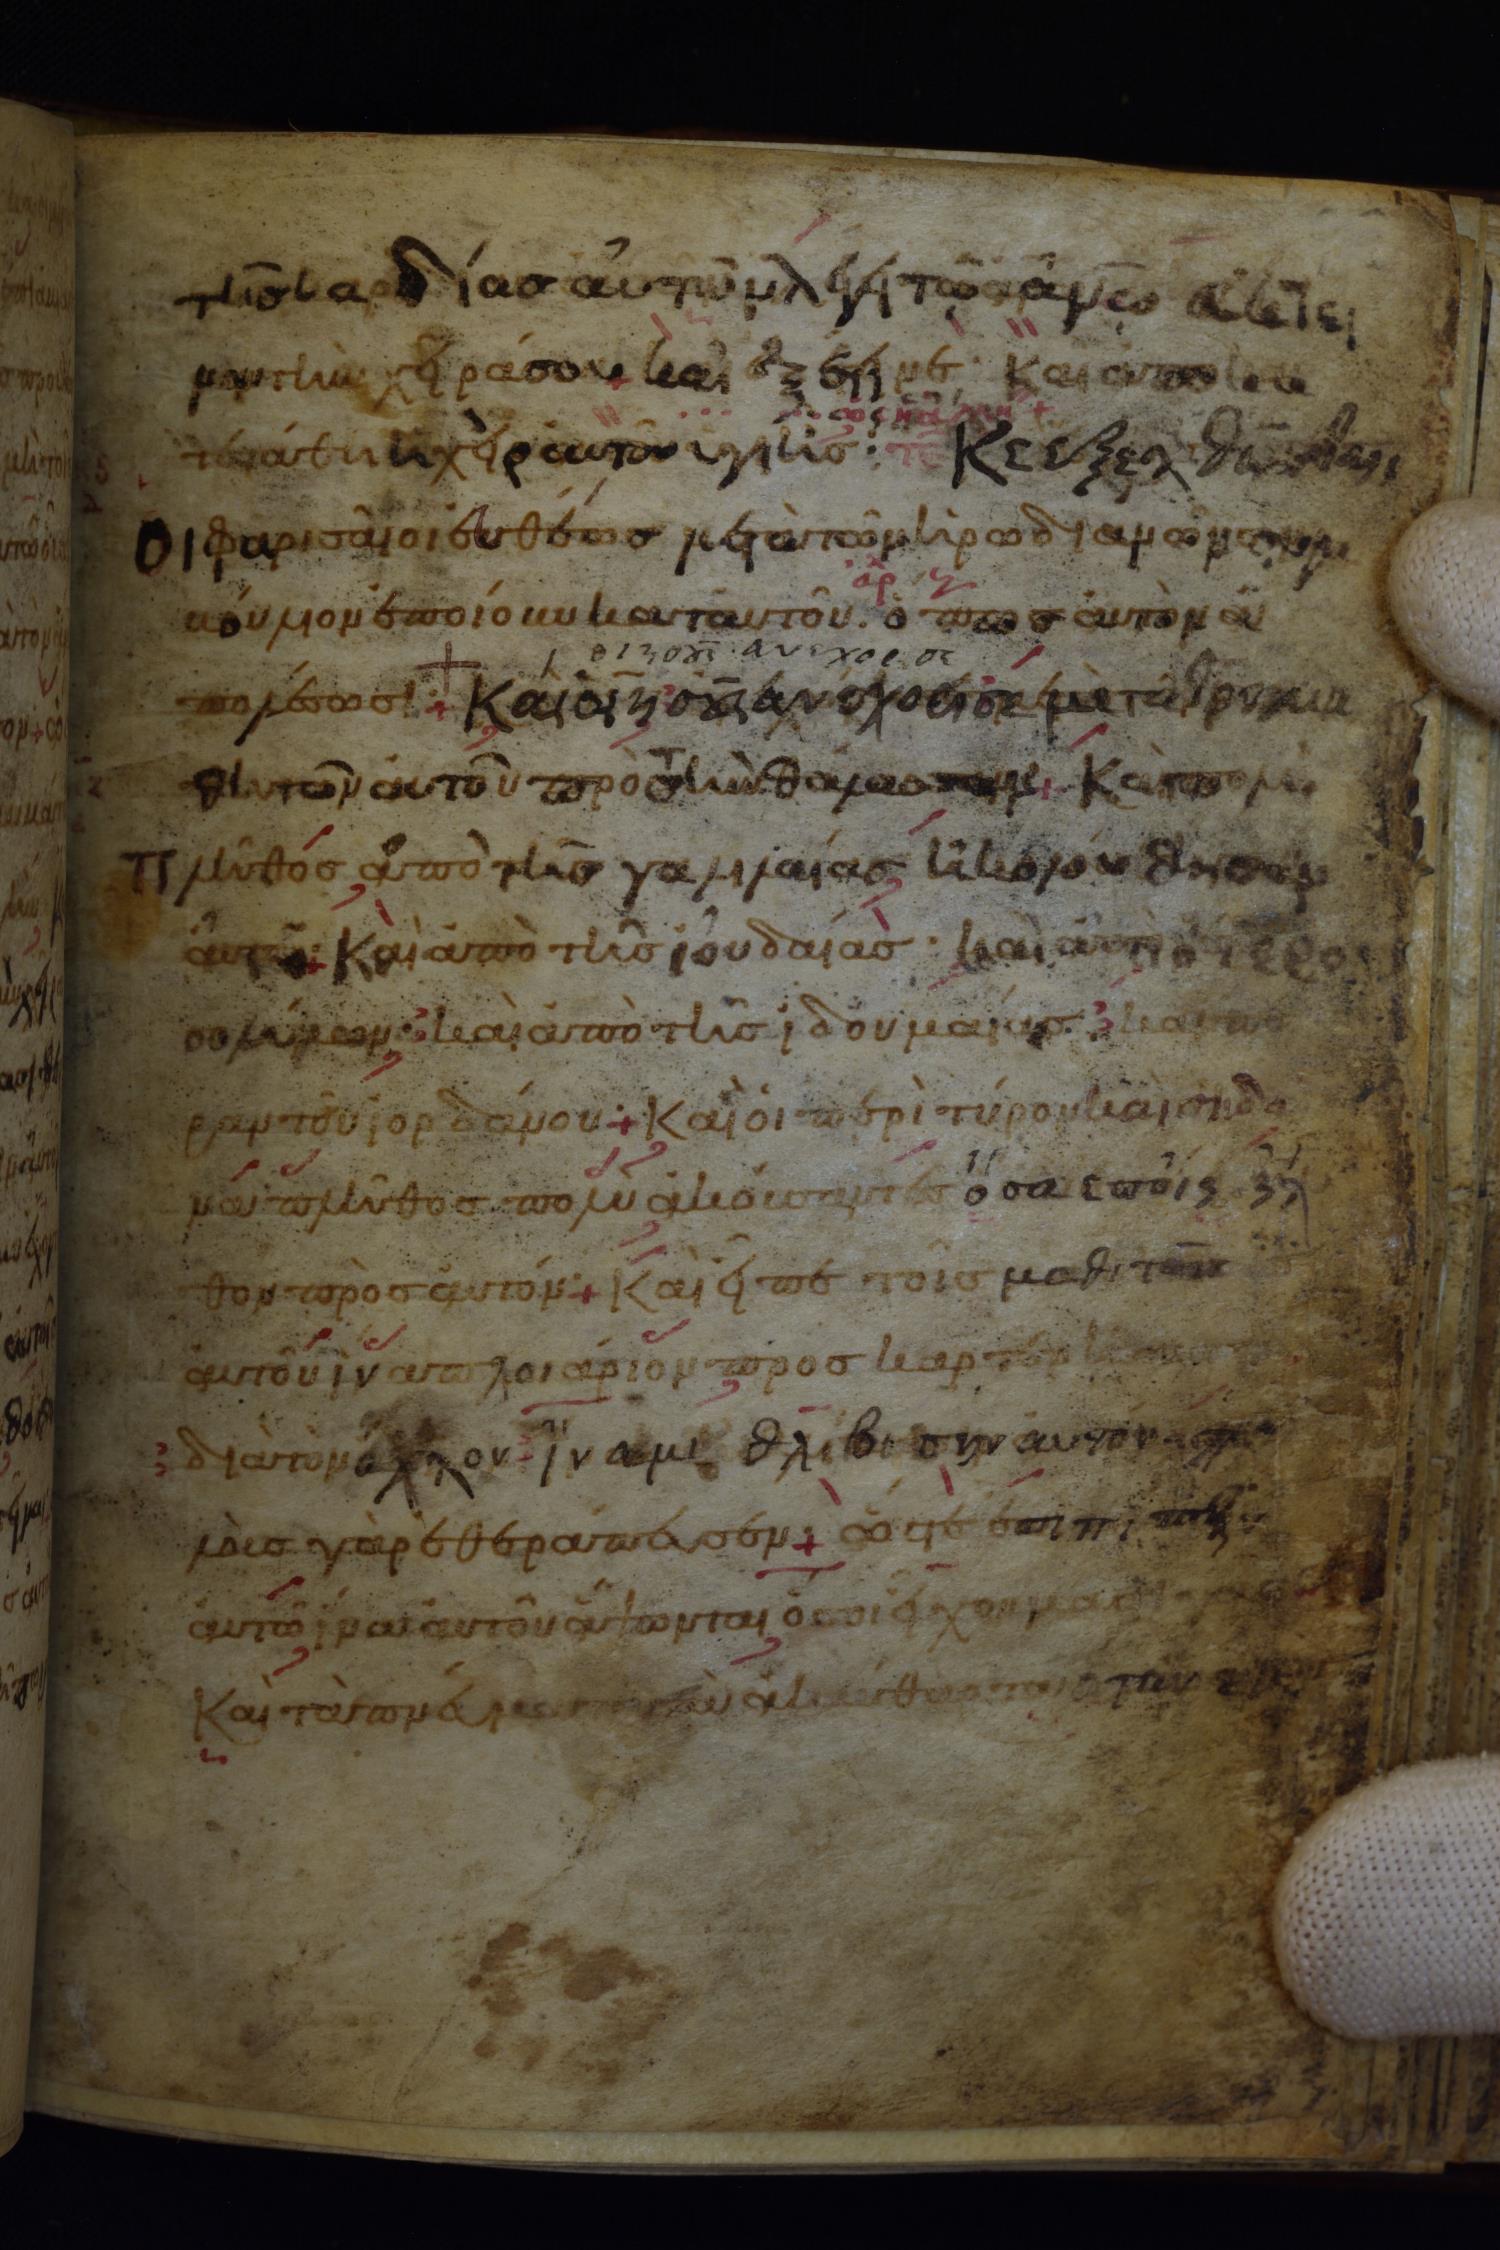 τῆς καρδίας αὐτῶν λέγει τῷ ἀνῶ ἔκτει
νον τὴν χεῖρά σου + καὶ ἐξέτεινε· Καὶ ἀποκα
τεστάθη ἡ χεὶρ αὐτοῦ ὑγιὴς: Κε ἐξελθόντες
Οἱ φαρισαῖοι εὐθέως μετὰ τῶν ἡρωδιανῶν συμ
βούλιον ἐποίουν κατ' αὐτοῦ. ὅπως αὐτὸν ἀ
θιησοῦς ανεχορισε
πολέσωσι:+ Καὶ ὁ ιησοῦς ἀνεχόρισε μετὰ τῶν μα
θητῶν αὐτοῦ πρὸς τὴν θάλασσαν + Καὶ πολὺ
Πλῆθος ἀπὸ τῆς γαλιλαίας ἠκολούθησαν
αὐτῷ:+ Καὶ ἀπὸ τῆς ἰουδαίας· καὶ ἀπὸ ἱερο
σολύμων· καὶ ἀπὸ τῆς ἰδουμαίας· καὶ πέ
ραν τοῦ ἰορδάνου:+ Καὶ οἱ περὶ τύρον καὶ σιδῶ
να πλῆθος πολὺ ἀκούσαντες ὅσα εποίει ἦλ
θον πρὸς αὐτόν:+ Καὶ εἶπε τοῖς μαθιταῖς
αὐτοῦ ἵνα πλοιάριον προσκαρτερῇ αὐτῷ
διὰ τὸν ὄχλον ἵνα μι θλίβωσιν αὐτόν πολ
λοὺς γὰρ ἐθεράπευσεν:+ ὥστε ἐπιπίπτειν
αὐτῷ ἵνα αὐτοῦ ἅψωνται ὅσοι εἶχον μάστιγας
Καὶ τὰ πνεύματα τὰ ἀκάθαρτα ὅταν